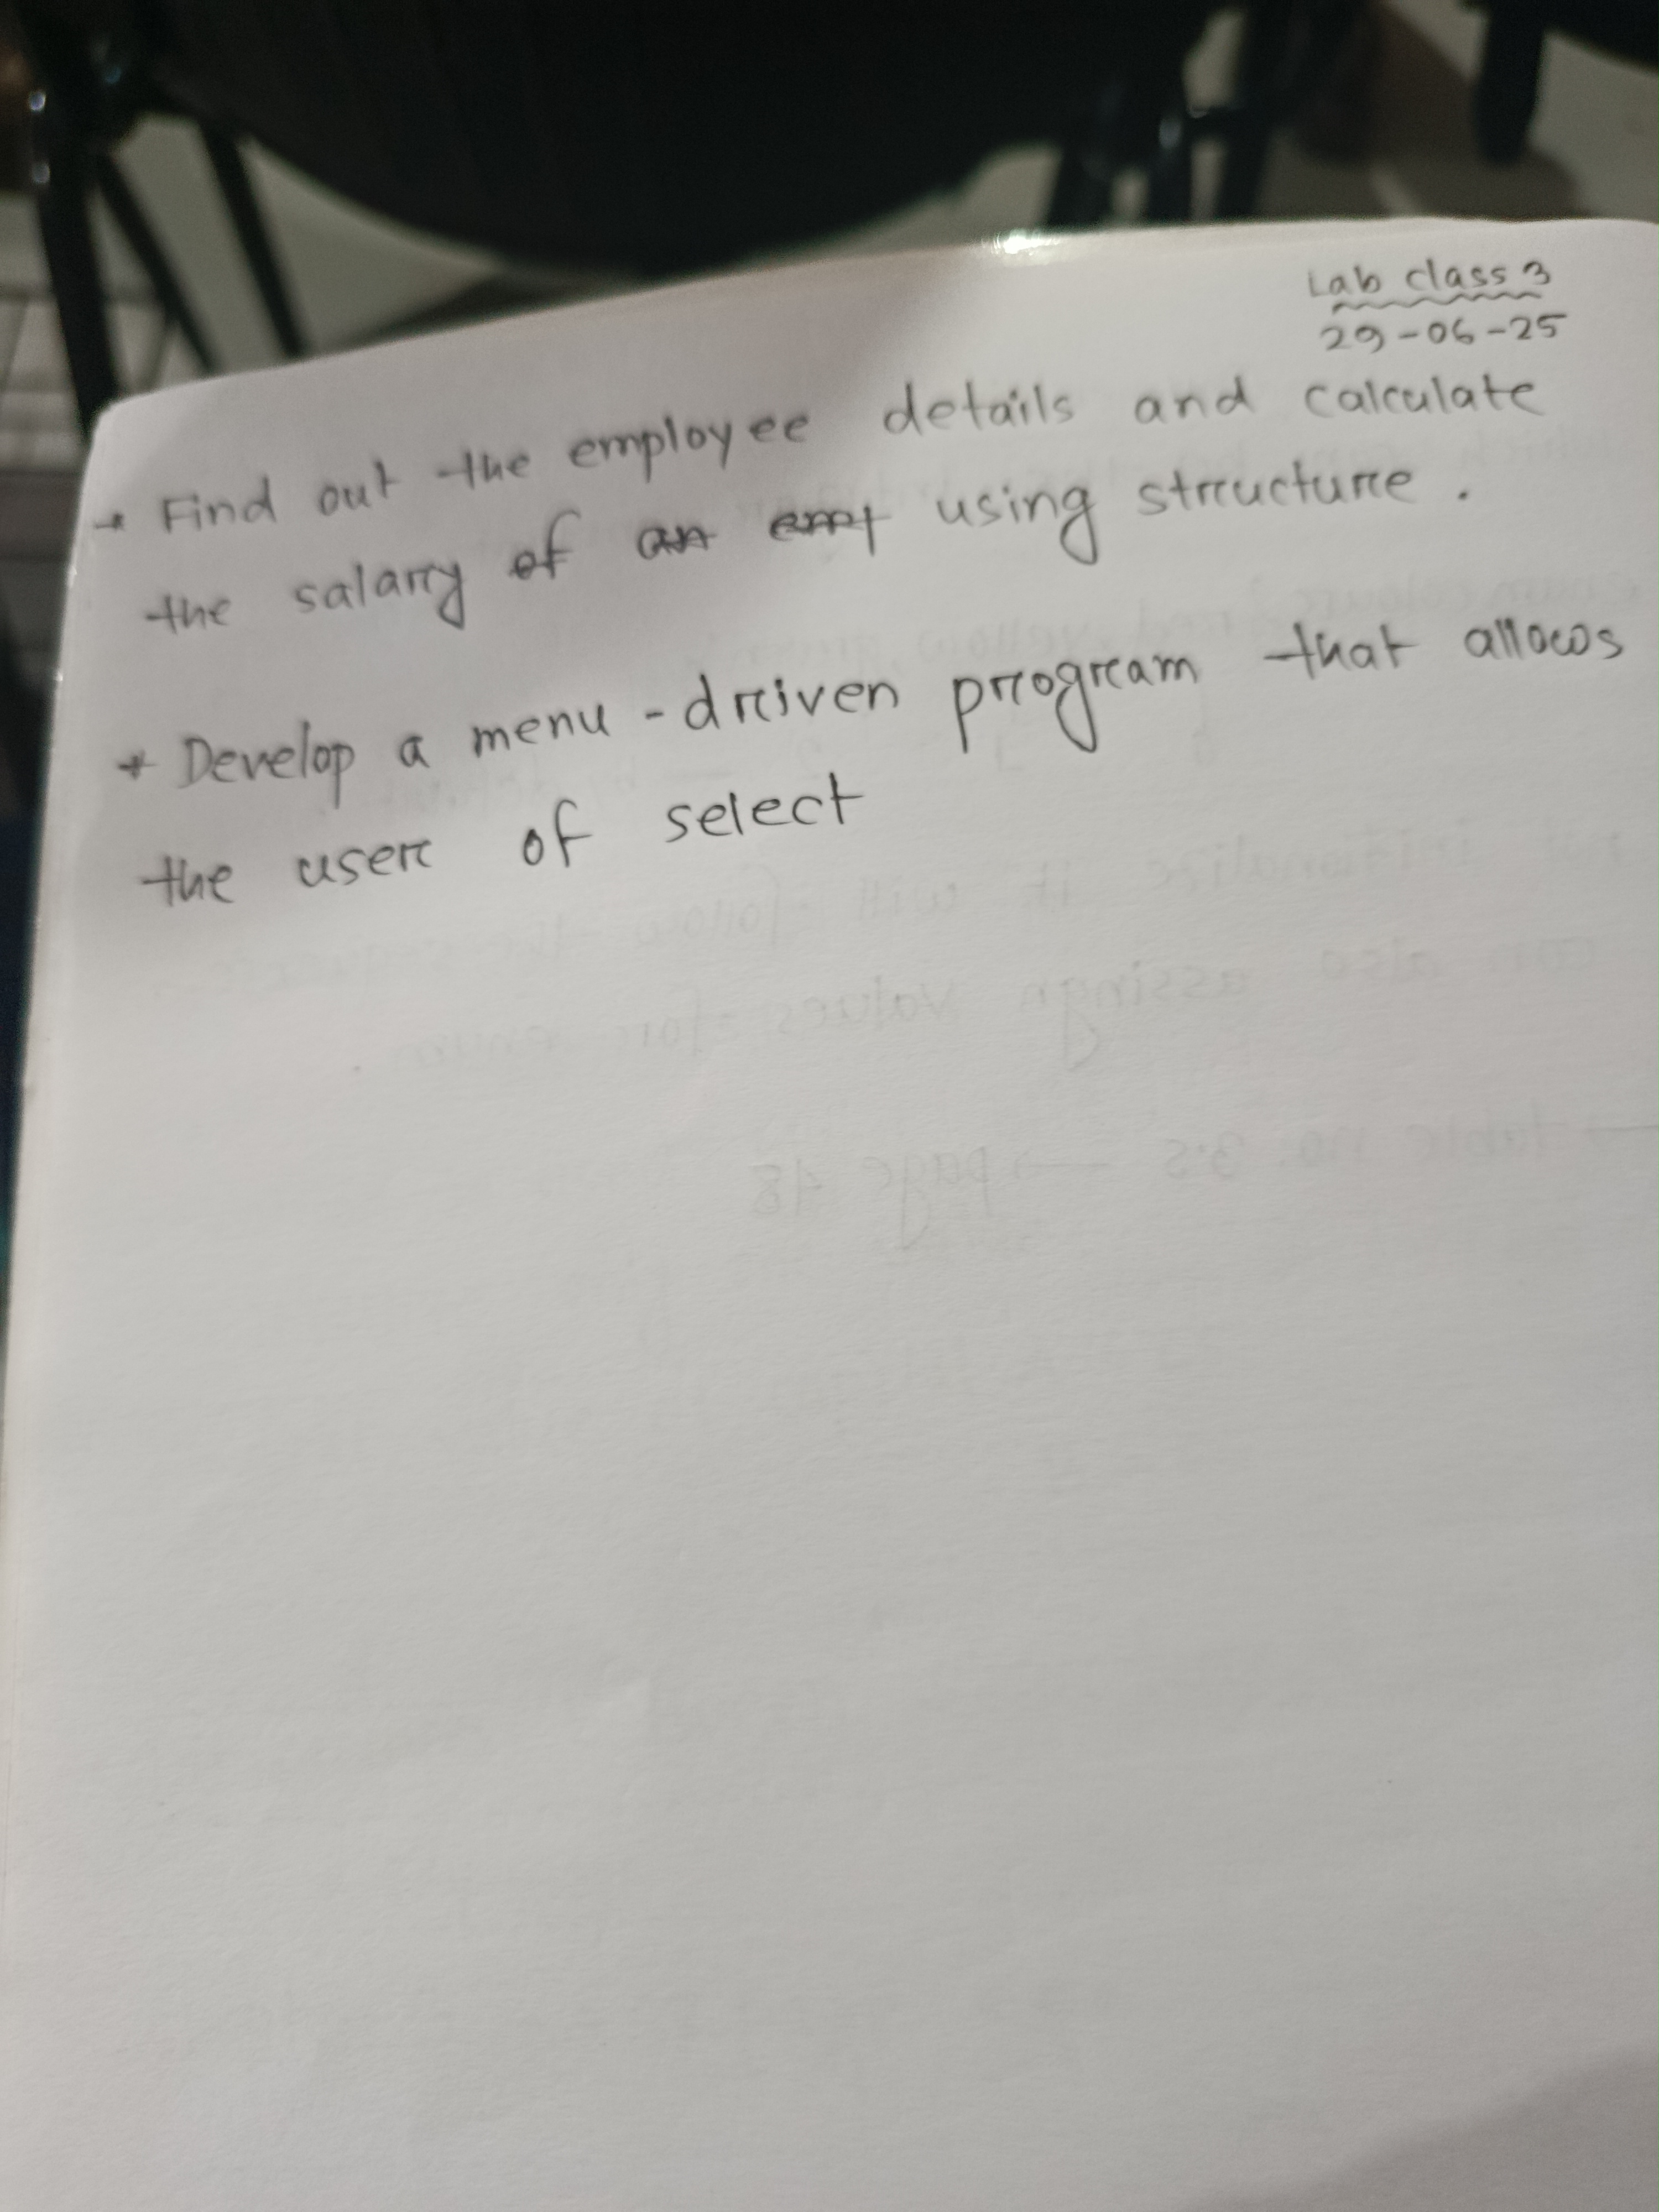 Lab class 3
29-06-25
* Find out the employee details and calculate
the salary of using structure.
* Develop a menu-driven program that allows
the user of select